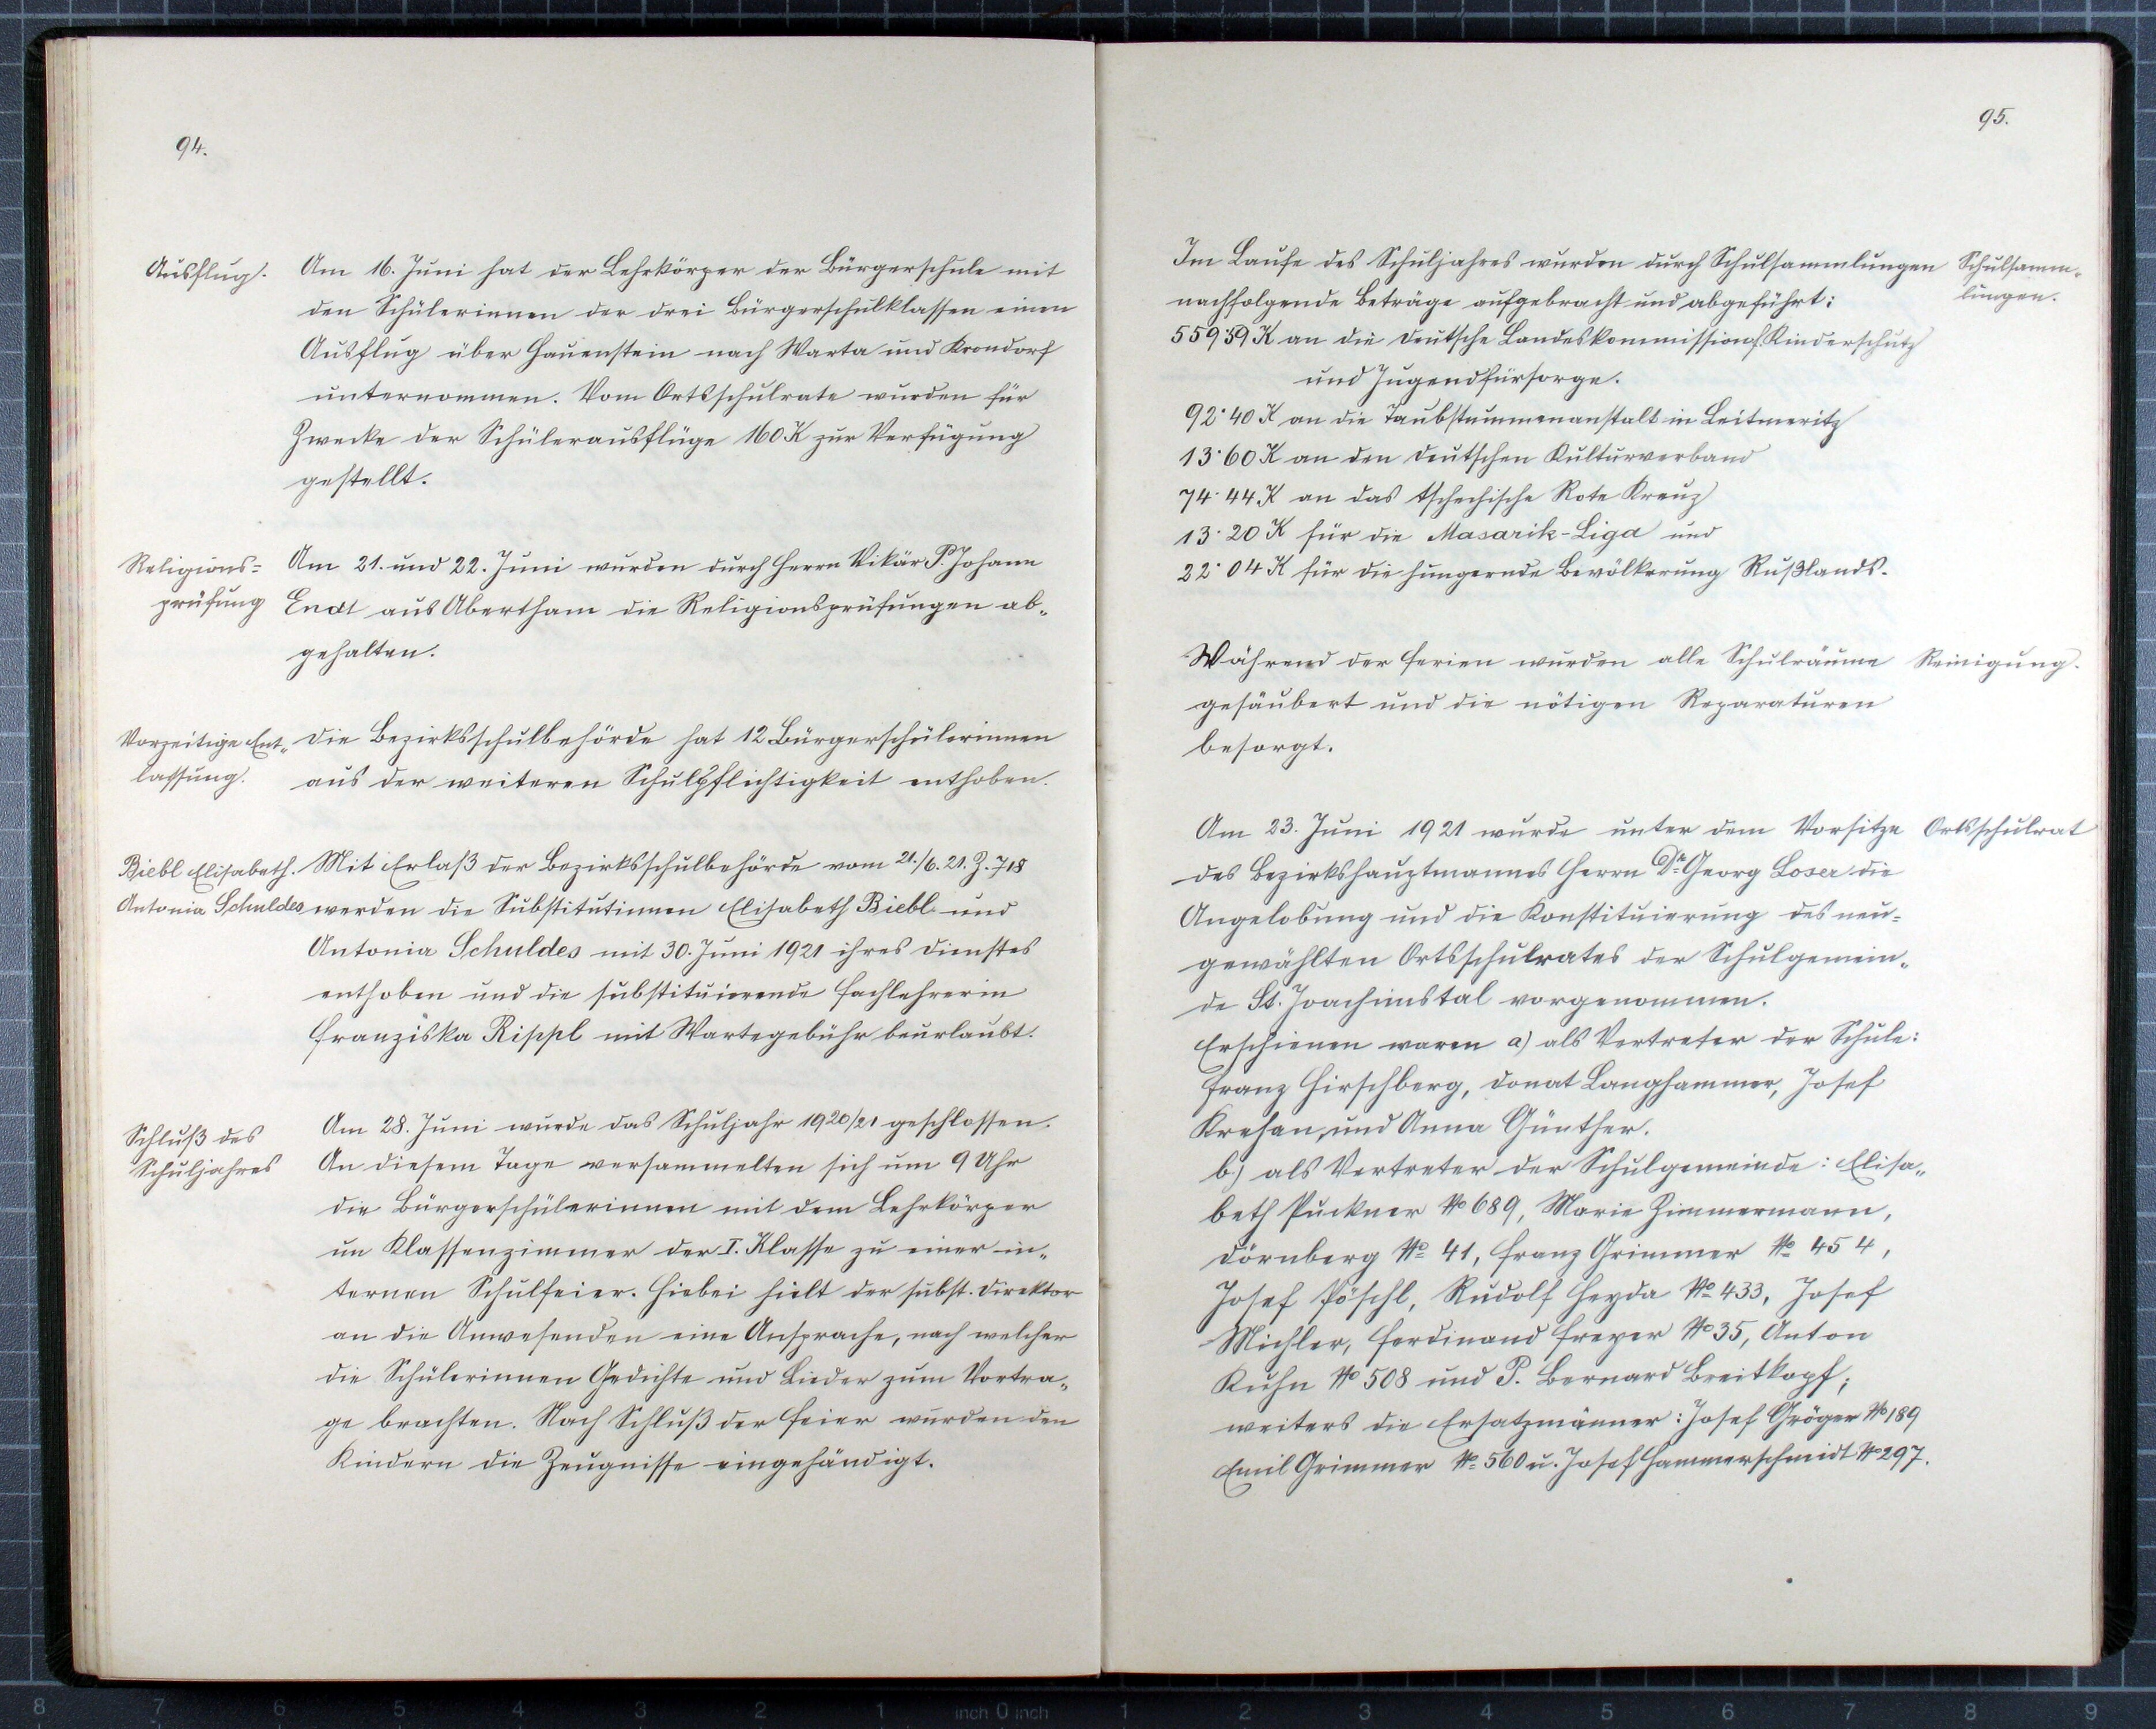 94.
Ausflug.
Am 16. Juni hat der Lehrkörper der Bürgerschule mit
den Schülerinnen der drei Bürgerschulklassen einen
Ausflug über Hauenstein nach Warta und Krondorf
unternommen. Vom Ortsschulrate wurden für
Zwecke der Schülerausflüge 160 K zur Verfügung
gestellt.
Religions-
prüfung
Am 21. und 22. Juni wurden durch Herrn Vikär P. Johann
Endt aus Abertham die Religionsprüfungen ab-
gehalten.
Vorzeitige Ent-
lassung.
Die Bezirksschulbehörde hat 12 Bürgerschülerinnen
aus der weiteren Schulpflichtigkeit enthoben.
Biebl Elisabeth.
Antonia Schuldes
Mit Erlaß der Bezirksschulbehörde vom 21./6. 21. Z. 718
werden die Substitutinnen Elisabeth Biebl und
Antonia Schuldes mit 30. Juni 1921 ihres Dienstes
enthoben und die substituierende Fachlehrerin
Franziska Rippl mit Wartegebühr beurlaubt.
Schluß des
Schuljahres
Am 28. Juni wurde das Schuljahr 1920/21 geschlossen.
An diesem Tage versammelten sich um 9 Uhr
die Bürgerschülerinnen mit dem Lehrkörper
im Klassenzimmer der I. Klasse zu einer in-
ternen Schulfeier. Hiebei hielt der subst. Direktor
an die Anwesenden eine Ansprache, nach welcher
die Schülerinnen Gedichte und Lieder zum Vortra-
ge brachten. Nach Schluß der Feier wurden den
Kindern die Zeugnisse eingehändigt.
95.
Im Laufe des Schuljahres wurden durch Schulsammlungen
nachfolgende Beträge aufgebracht und abgeführt:
Schulsamm-
lungen.
559·59 K an die Deutsche Landeskommission f. Kinderschutz
und Jugendfürsorge.
92·40 K an die Taubstummenanstalt in Leitmeritz
13·60 K an den Deutschen Kulturverband
74·44 K an das tschechische Rote Kreuz
13·20 K für die Masarik-Liga und
22·04 K für die hungernde Bevölkerung Rußlands.
Während der Ferien wurden alle Schulräume
gesäubert und die nötigen Reparaturen
besorgt.
Reinigung.
Am 23. Juni 1921 wurde unter dem Vorsitze
Ortsschulrat
des Bezirkshauptmannes Herrn Dr. Georg Loser die
Angelobung und die Konstituierung des neu-
gewählten Ortsschulrates der Schulgemein-
de St. Joachimstal vorgenommen.
Erschienen waren a) als Vertreter der Schule:
Franz Hirschberg, Donat Langhammer, Josef
Krehan, und Anna Günther.
b) als Vertreter der Schulgemeinde: Elisa-
beth Puckner No 689, Marie Zimmermann,
Dörnberg No 41, Franz Grimmer No 454,
Josef Pöschl, Rudolf Heyda No 433, Josef
Michler, Ferdinand Freyer No 35, Anton
Kuhn No 508 und P. Bernard Breitkopf;
weiters die Ersatzmänner: Josef Gröger No 189
Emil Grimmer No 560 u. Josef Hammerschmidt No 297.
8 7 6 5 4 3 2 1 inch 0 inch 1 2 3 4 5 6 7 8 9